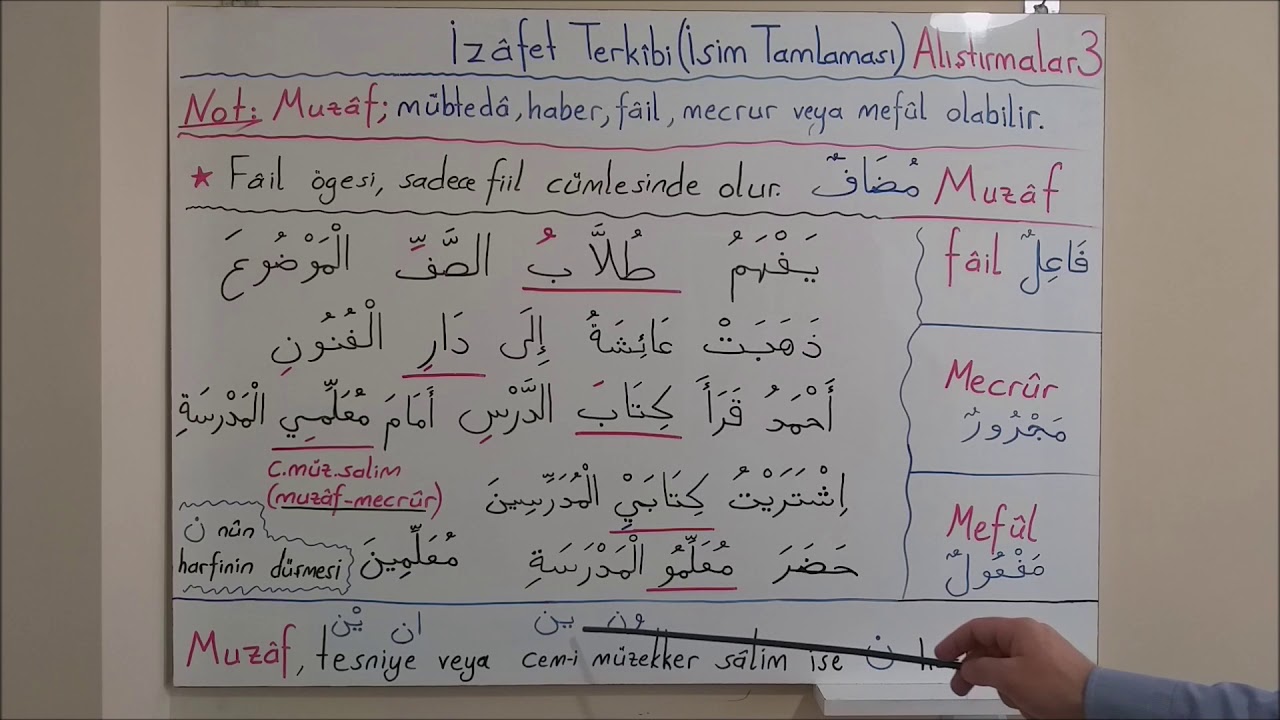 İzâfet Terkîbi (İsim Tamlaması) Alıştırmalar 3
Not: Muzâf; mübtedâ, haber, fâil, mecrur veya mefûl olabilir.
★ Fâil ögesi, sadece fiil cümlesinde olur. مُضَافٌ Muzâf
يَفْهَمُ طُلاَّبُ الصَّفِّ الْمَوْضُوعَ
fâil فَاعِلٌ
ذَهَبَتْ عَائِشَةُ إِلَى دَارِ الْفُنُونِ
Mecrûr
مَجْرُورٌ
أَحْمَدُ قَرَأَ كِتَابَ الدَّرْسِ أَمَامَ مُعَلِّمِي الْمَدْرَسَةِ
c.müz.salim
(muzâf-mecrûr)
اِشْتَرَيْتُ كِتَابَيْ الْمُدَرِّسِينَ
Mefûl
مَفْعُولٌ
حَضَرَ مُعَلِّمُو الْمَدْرَسَةِ
مُعَلِّمِينَ
ن nûn
harfinin düşmesi
ون ين
ان يْن
Muzâf, tesniye veya cem-i müzekker sâlim ise ن